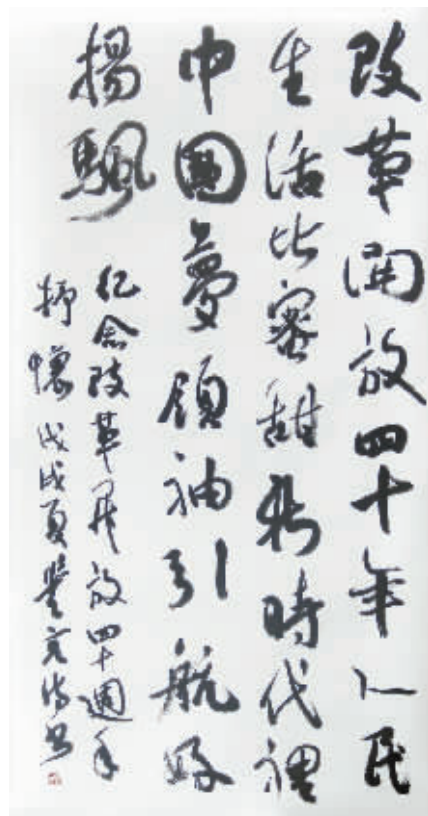 改革開放四十年人民
生活比蜜甜新時代裡
中國夢領袖引航好
揚颿
紀念改革开放四十週年
抒懷戊戌夏